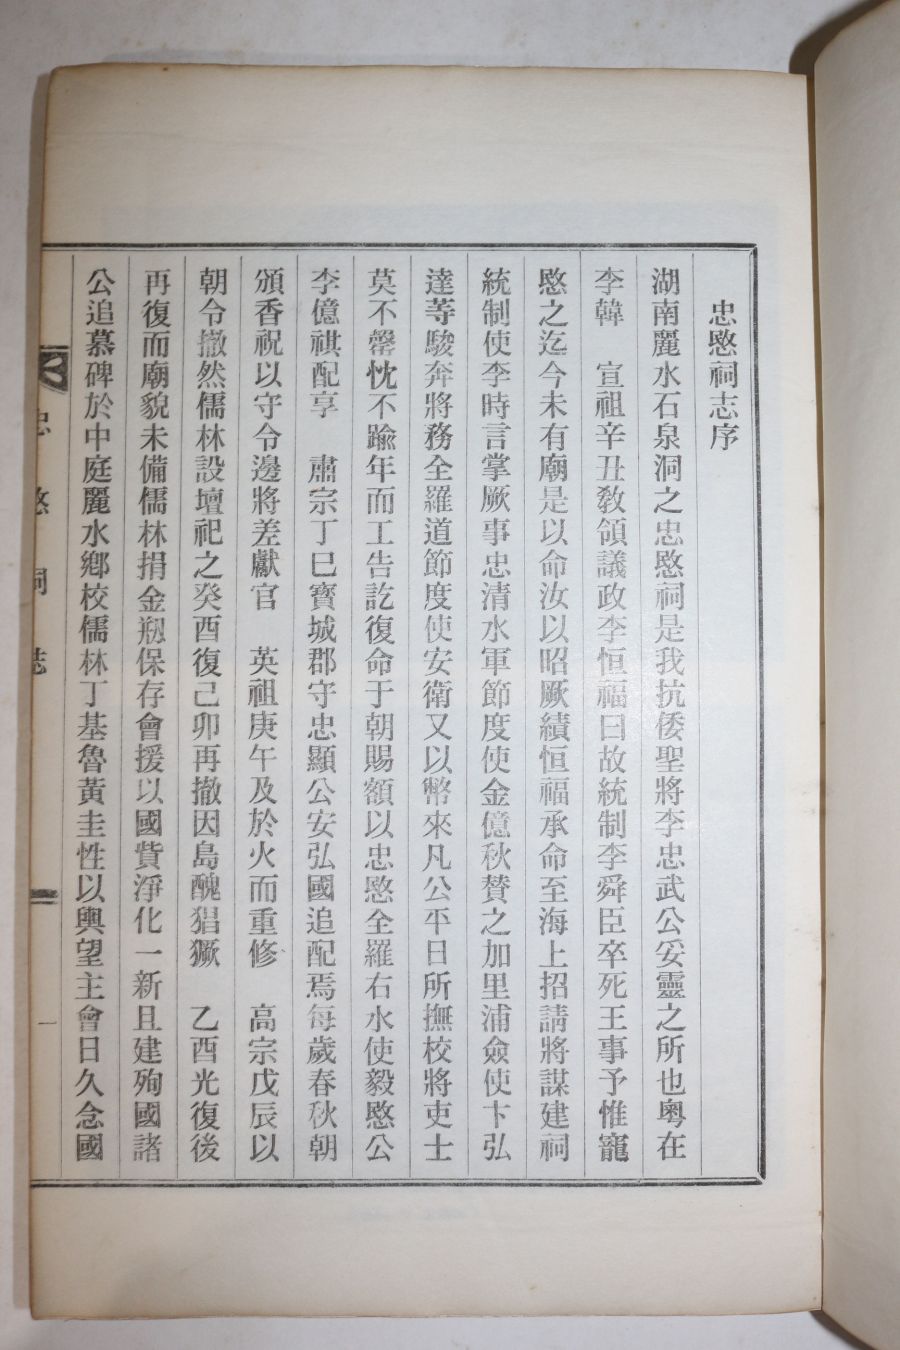 忠愍祠志序
湖南麗水石泉洞之忠愍祠是我抗倭聖將李忠武公妥靈之所也粤在
李韓　宣祖辛丑敎領議政李恒福曰故統制李舜臣卒死王事予惟寵
愍之迄今未有廟是以命汝以昭厥績恒福承命至海上招請將謀建祠
統制使李時言掌厥事忠清水軍節度使金億秋賛之加里浦僉使卞弘
達等駿奔將務全羅道節度使安衛又以幣來凡公平日所撫校將吏士
莫不罄忱不踰年而工告訖復命于朝賜額以忠愍全羅右水使毅愍公
李億祺配享　肅宗丁巳寶城郡守忠顯公安弘國追配焉每歲春秋朝
頒香祝以守令邊將差獻官　英祖庚午及於火而重修　高宗戊辰以
朝令撤然儒林設壇祀之癸酉復己卯再撤因島醜猖獗　乙酉光復後
再復而廟貌未備儒林捐金刱保存會援以國貲淨化一新且建殉國諸
公追慕碑於中庭麗水鄕校儒林丁基魯黃圭性以輿望主會日久念國
忠愍祠誌
一